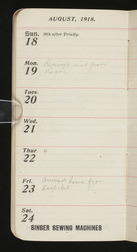 AUGUST, 1918.
Sun. 18 12th after Trinity.
Mon. 19
Tues. 20
Wed. 21
Thur. 22
Fri. 23 home from
hospital
Sat. 24
SINGER SEWING MACHINES